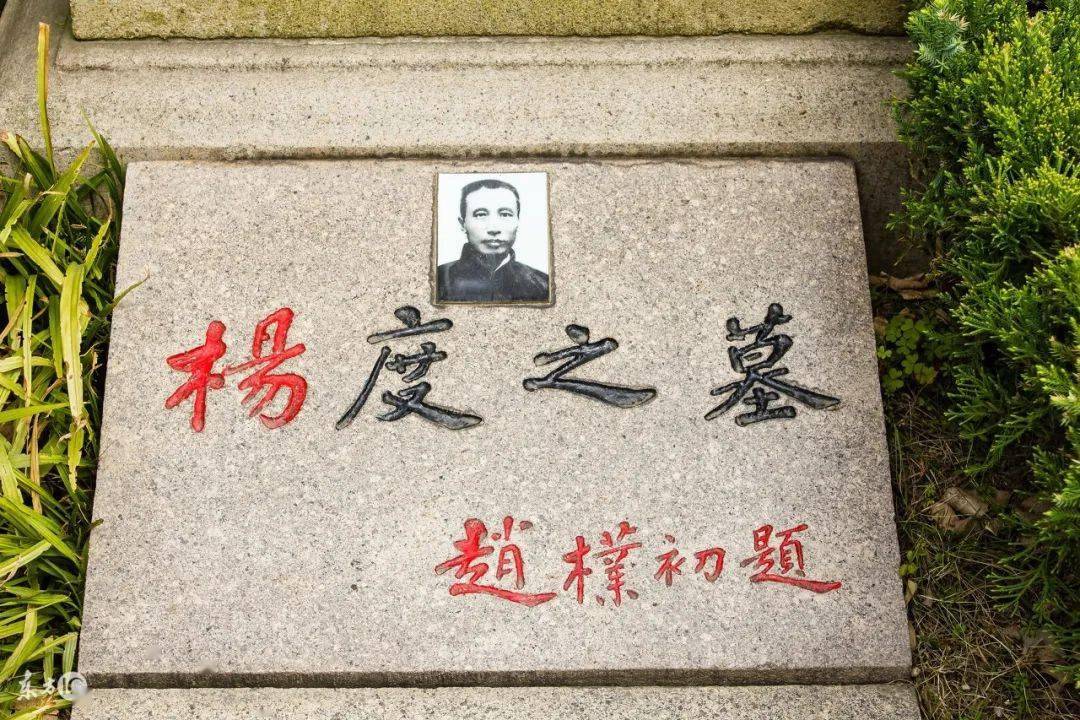 楊度之墓
趙樸初題
东方IC